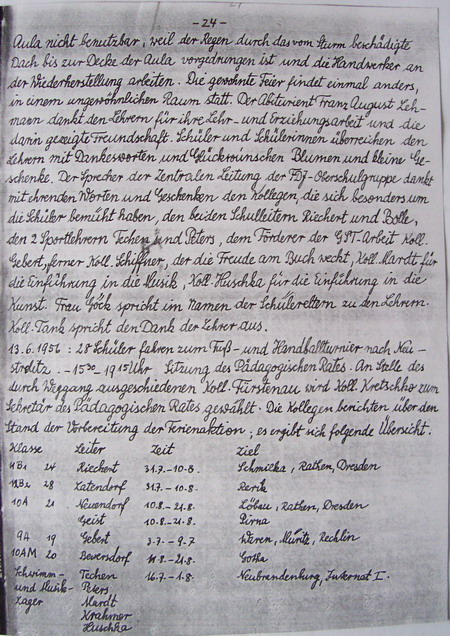 - 24 -
Aula nicht benutzbar, weil der Regen durch das vom Sturm beschädigte
Dach bis zur Decke der Aula vorgedrungen ist und die Handwerker an
der Wiederherstellung arbeiten. Die gewohnte Feier findet einmal anders,
in einem ungewöhnlichen Raum statt. Der Abiturient Franz August Leh-
mann dankt den Lehrern für ihre Lehr- und Erziehungsarbeit und die
darin gezeigte Freundschaft. Schüler und Schülerinnen überreichen den
Lehrern mit Dankesworten und Glückwünschen Blumen und kleine Ge-
schenke. Der Sprecher der Zentralen Leitung der FDJ-Oberschulgruppe dankt
mit ehrenden Worten und Geschenken den Kollegen, die sich besonders um
die Schüler bemüht haben, den beiden Schulleitern Riechert und Bolle,
den 2 Sportlehrern Techen und Peters, dem Förderer der GST-Arbeit Koll.
Gebert, ferner Koll. Schiffner, der die Freude am Buch weckt, Koll. Mardt für
die Einführung in die Musik, Koll. Huschka für die Einführung in die
Kunst. Frau Göck spricht im Namen der Schülereltern zu den Lehrern.
Koll. Tank spricht den Dank der Lehrer aus.
13.6.1956 : 28 Schüler fahren zum Fuß- und Handballturnier nach Neu-
strelitz. - 15³⁰ - 19¹⁵ Uhr Sitzung des Pädagogischen Rates. An Stelle des
durch Weggang ausgeschiedenen Koll. Fürstenau wird Koll. Kretschko zum
Sekretär des Pädagogischen Rates gewählt. Die Kollegen berichten über den
Stand der Vorbereitung der Ferienaktion; es ergibt sich folgende Übersicht.
Klasse Leiter Zeit Ziel
11B1 24 Riechert 31.7. - 10.8. Schmilka, Rathen, Dresden
11B2 28 Latendorf 31.7. - 10.8. Rerik
10A 21 Neuendorf 10.8. - 21.8. Löbau, Rathen, Dresden
Geist 10.8. - 21.8. Pirna
9A 19 Gebert 3.7. - 9.7. Waren, Müritz, Rechlin
10AM 20 Beversdorf 11.8. - 21.8. Gotha
Schwimm- Techen 16.7. - 1.8. Neubrandenburg, Internat I.
und Musik- Peters
Lager Mardt
Krahmer
Huschka